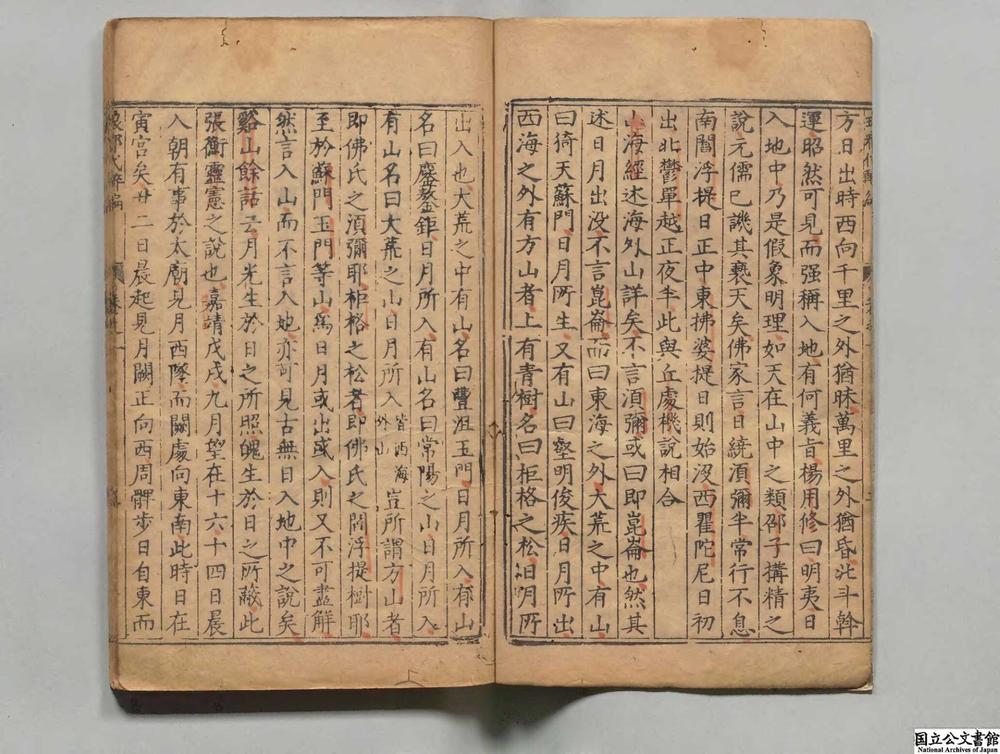 方日出時西向千里之外猶昧萬里之外猶昏北斗斡
運昭然可見而强稱入地有何義旨楊用修曰明夷日
入地中乃是假象明理如天在山中之類邵子搆精之
說元儒已譏其褻天矣佛家言日繞湏彌半常行不息
南閻浮提日正中東拂婆提日則始沒西瞿陀尼日初
出北鬱單越正夜半此與丘處機說相合
山海經述海外山詳矣不言湏彌或曰即崑崙也然其
述日月出没不言崑崙而曰東海之外大荒之中有山
曰猗天蘇門日月所生又有山曰壑明俊疾日月所出
西海之外有方山者上有青樹名曰柜格之松日月所
出入也大荒之中有山名曰豐沮玉門日月所入有山
名曰鏖鏊鉅日月所入有山名曰常陽之山日月所入
有山名曰大荒之山日月所入皆西海外山豈所謂方山者
即佛氏之湏彌耶柜格之松者即佛氏之閻浮提樹耶
至於蘇門玉門等山爲日月或出或入則又不可盡解
然言入山而不言入地亦可見古無日入地中之說矣
谿山餘話云月光生於日之所照魄生於日之所蔽此
張衡靈憲之說也嘉靖戊戌九月望在十六十四日晨
入朝有事於太廟見月西墜而闕處向東南此時日在
寅宮矣廿二日晨起見月闕正向西周髀步日自東而
国立公文書館
National Archives of Japan